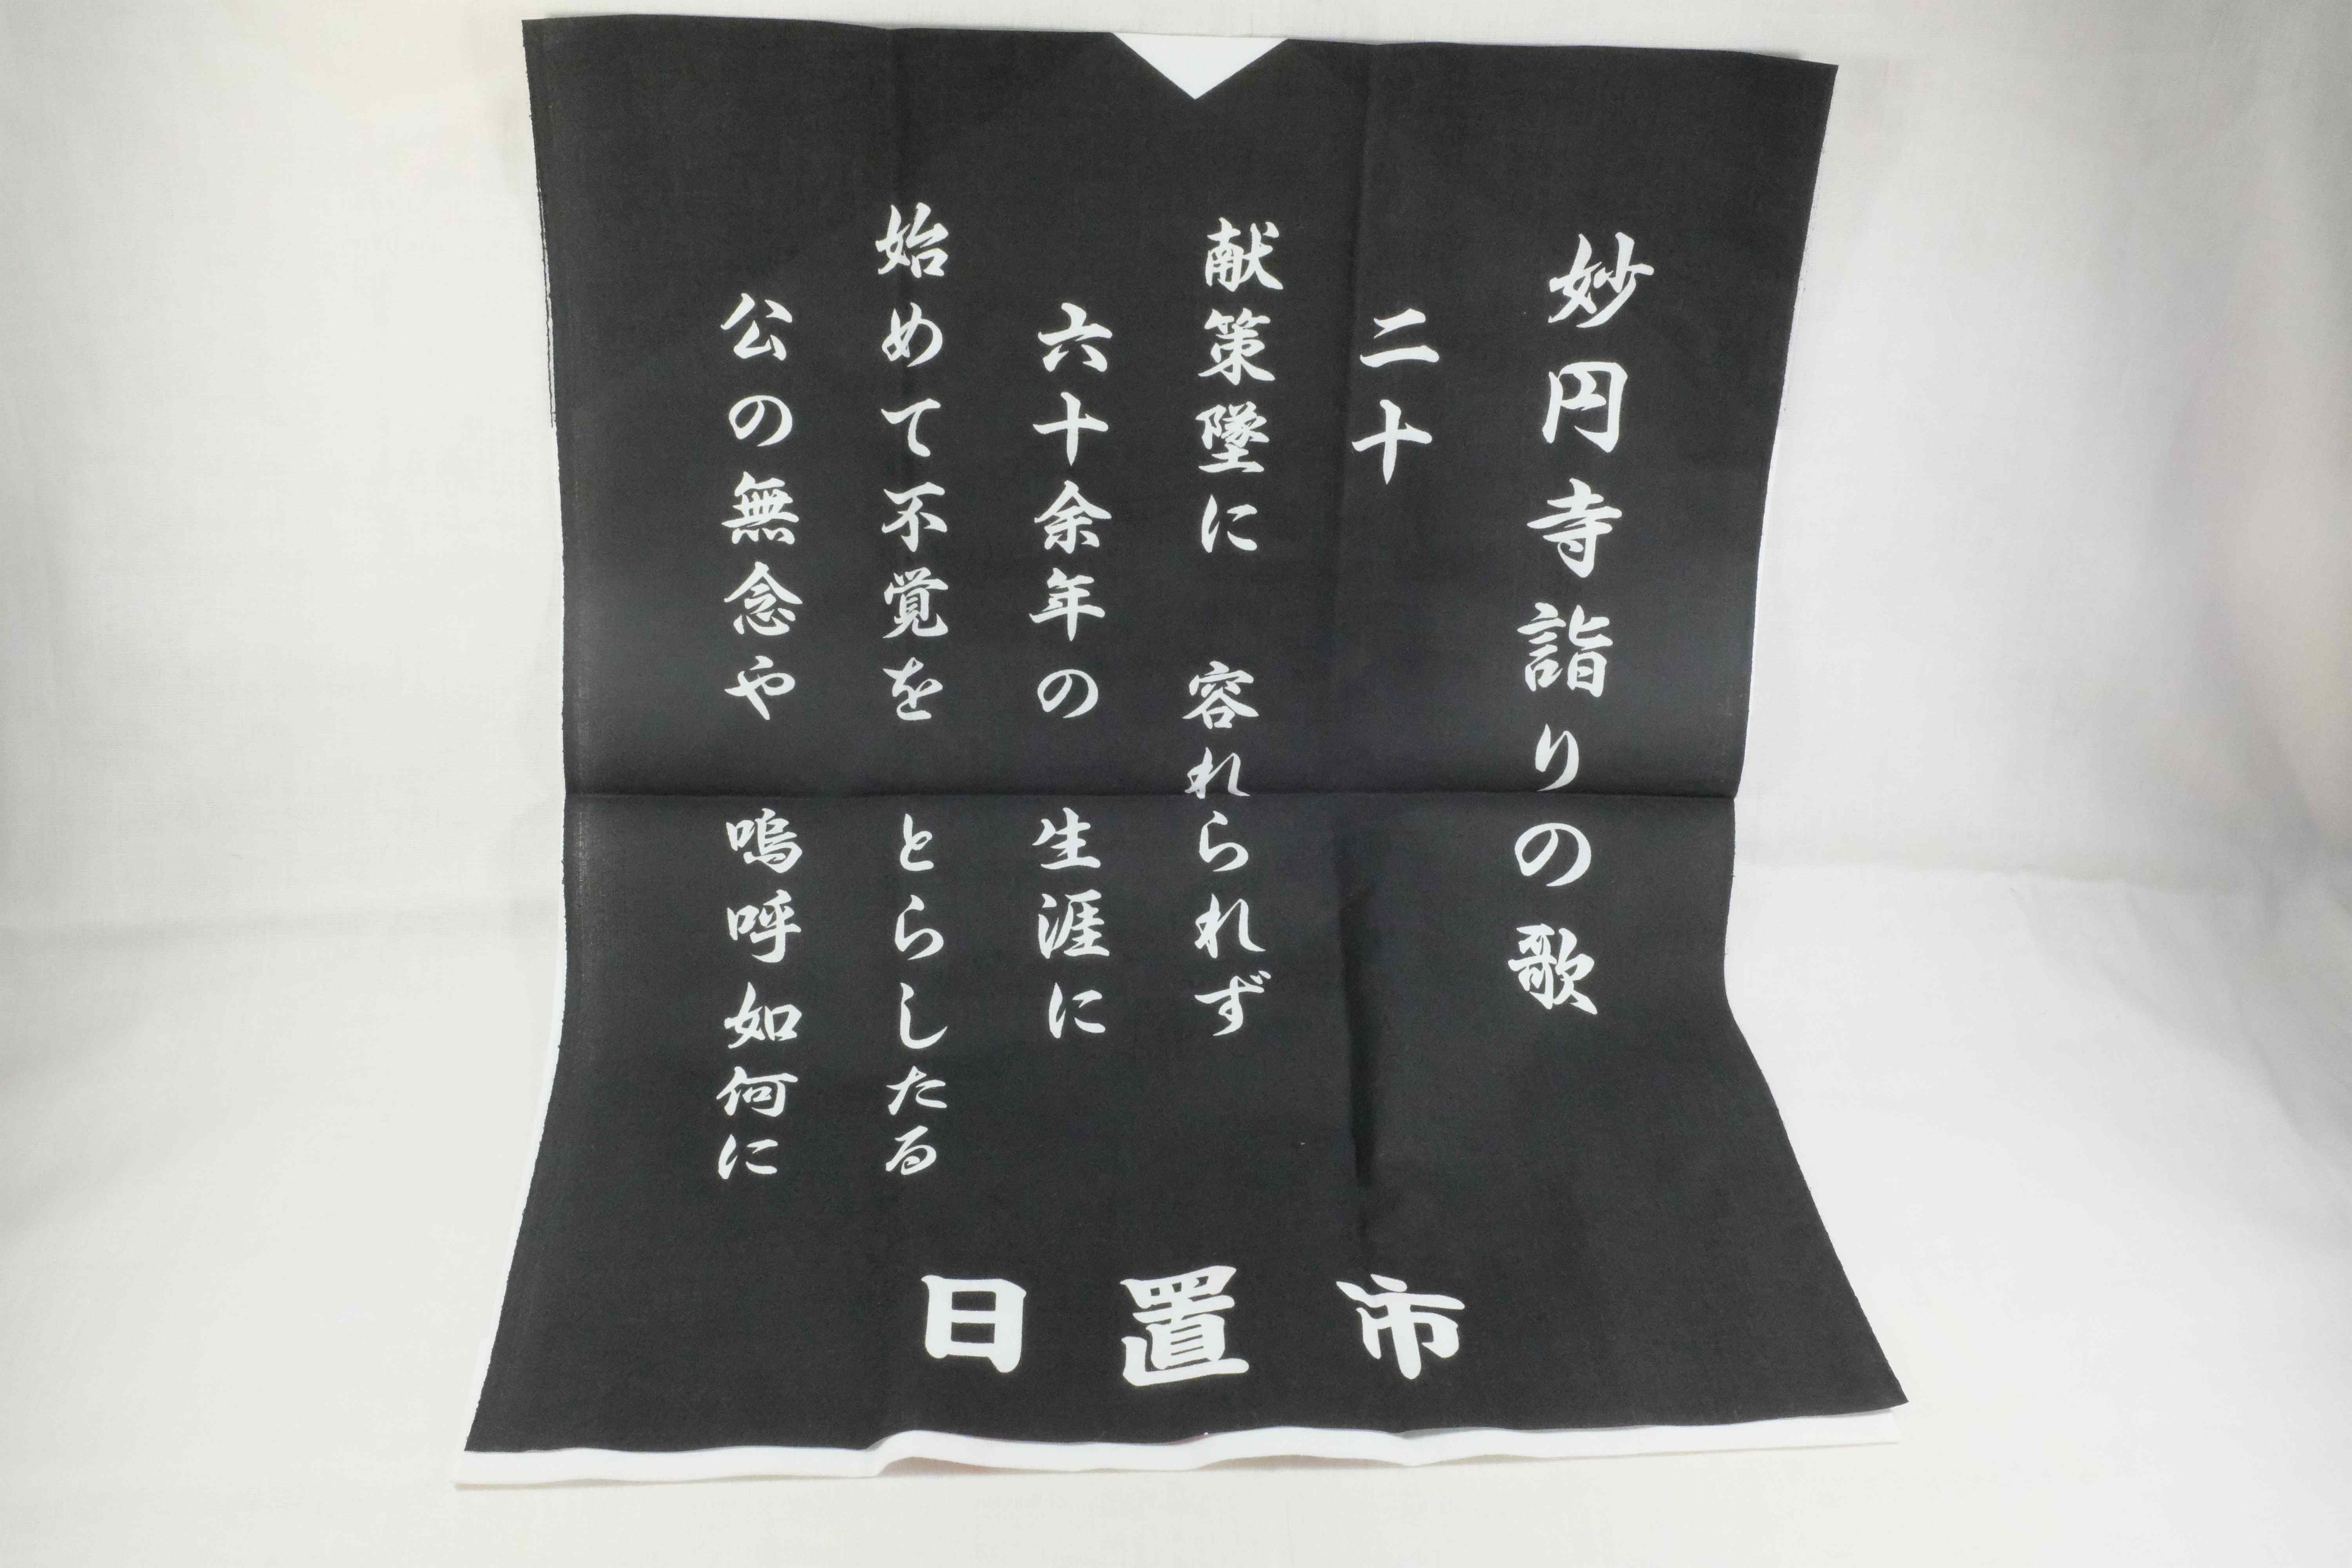 妙円寺詣りの歌
二十
献策墜に　容れられず
六十余年の　生涯に
始めて不覚を　とらしたる
公の無念や　嗚呼如何に
日置市